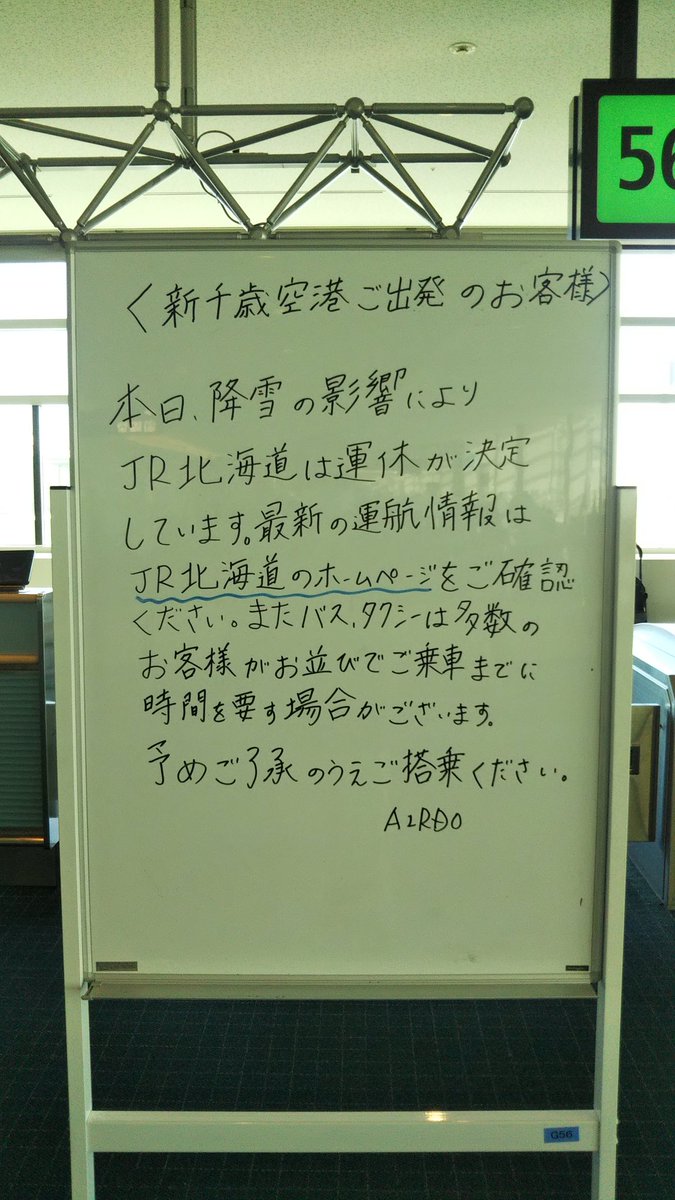 56
〈新千歳空港ご出発のお客様〉
本日、降雪の影響により
JR北海道は運休が決定
しています。最新の運航情報は
JR北海道のホームページをご確認
ください。またバス、タクシーは多数の
お客様がお並びでご乗車までに
時間を要す場合がございます。
予めご了承のうえご搭乗ください。
AIRDO
G56